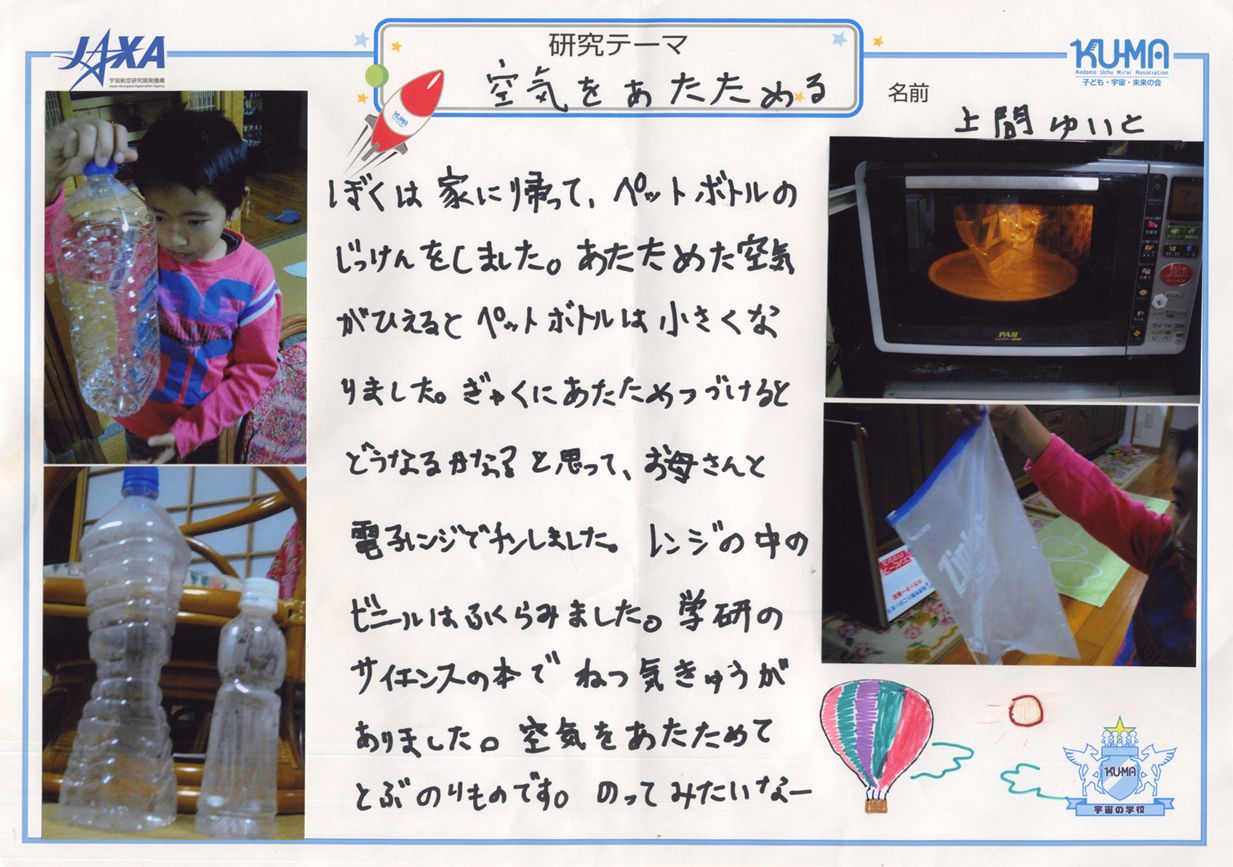 JAXA
宇宙航空研究開発機構
Japan Aerospace Exploration Agency
研究テーマ
空気をあたためる
KU-MA
Kodomo Uchu Mirai Association
子ども・宇宙・未来の会
名前
上間ゆいと
KU-MA
ぼくは家に帰って、ペットボトルの
じっけんをしました。あたためた空気
がひえるとペットボトルは小さくな
りました。ぎゃくにあたためつづけると
どうなるかな?と思って、お母さんと
電子レンジでチンしました。レンジの中の
ビニールはふくらみました。学研の
サイエンスの本でねつ気きゅうが
ありました。空気をあたためて
とぶのりものです。のってみたいなー
PAM
Ziploc
KU-MA
宇宙の学校